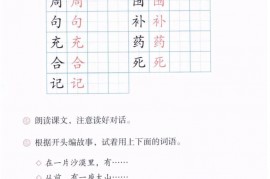 周 周 围 围
句 句 补 补
充 充 药 药
合 合 死 死
记 记
朗读课文，注意读好对话。
根据开头编故事，试着用上下面的词语。
◇ 在一片沙漠里，有……
◇ 从前，有一座大山……